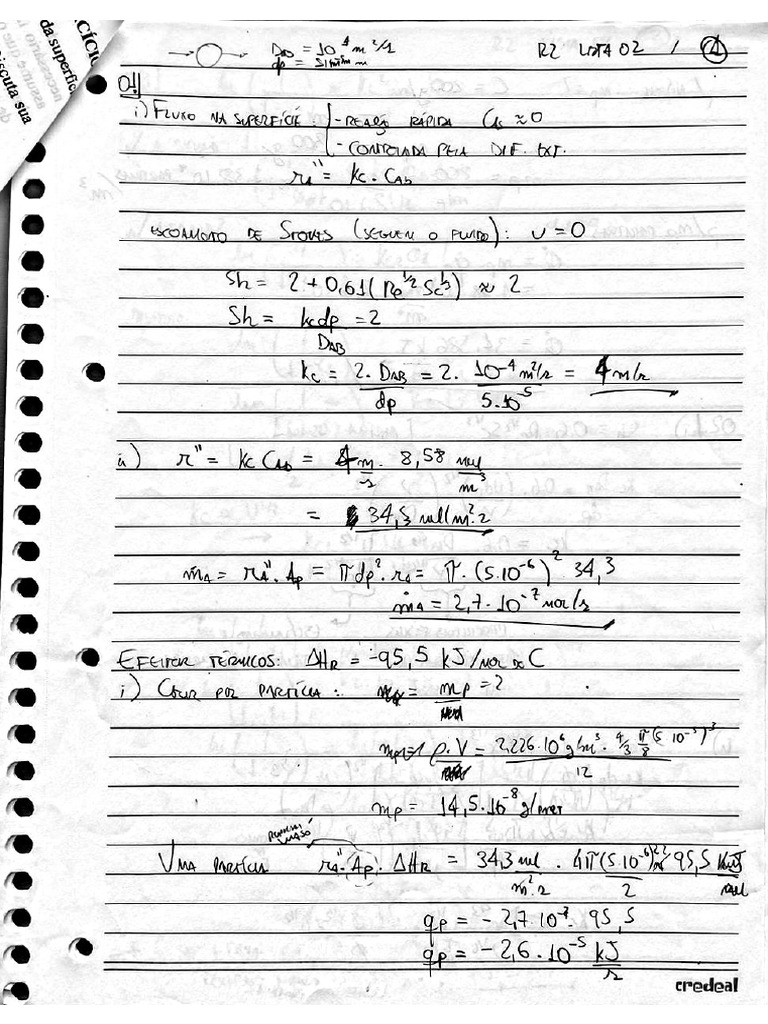 cício
da superfíc
iscuta sua
D_AB = 10^-4 m²/s
dp =
R2 LISTA 02 / 1
01)
i) FLUXO NA SUPERFÍCIE { - REAÇÃO RÁPIDA C_As ≈ 0
- CONTROLADA PELA DIF. EXT.
r_A'' = kc · C_Ab
ESCOAMENTO DE STOKES (SEGUEM O FLUIDO): U = 0
Sh = 2 + 0,61(Rep^1/2 Sc^1/3) ≈ 2
Sh = kc dp / D_AB = 2
kc = 2 · D_AB / dp = 2 · 10^-4 m²/s / 5.10^-5 = 4 m/s
ii) r'' = kc C_Ab = 4 m/s · 8,58 mol/m³
= 34,3 mol/m²·s
ṁ_A = r_A'' · Ap = π dp² · r_A = π · (5.10^-6)² 34,3
ṁ_A = 2,7 · 10^-7 mol/s
EFEITOS TÉRMICOS: ΔH_R = -95,5 kJ/MOL DE C
i) CALOR POR PARTÍCULA: = mp = 2
ρ.V = 2,226.10^6 g/m³ · 4/3 π/8 (5 10^-5)³ / 12
mp = 14,5.10^-8 g/part
UMA PARTÍCULA r_A'' · Ap · ΔH_R = 34,3 mol/m²·s · 4π(5.10^-6)² / 2 · 95,5 kJ/mol
qp = -2,7 10^-7 · 95,5
qp = -2,6 · 10^-5 kJ/s
credeal